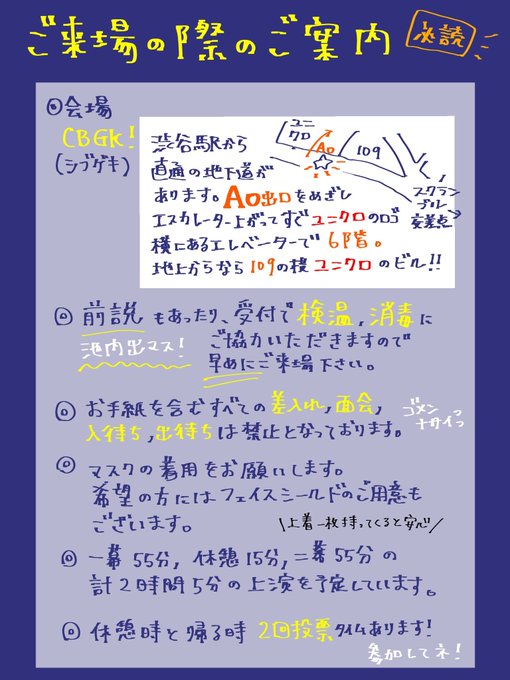 ご来場の際のご案内
必読
◎会場
CBGK!
(シブゲキ)
渋谷駅から
直通の地下道が
あります。A0出口をめざし
エスカレーター上がってすぐユニクロのロゴ
横にあるエレベーターで6階。
地上からなら109の横ユニクロのビル!!
ユニ
クロ
A0
109
スクラン
ブル
交差点→
◎前説もあったり、受付で検温,消毒に
ご協力いただきますので
早めにご来場下さい。
池内出マス!
◎お手紙を含むすべての差入れ,面会,
入待ち,出待ちは禁止となっております。
ゴメン
ナサイっ
◎マスクの着用をお願いします。
希望の方にはフェイスシールドのご用意も
ございます。
\上着一枚持ってくると安心/
◎一幕55分,休憩15分,二幕55分の
計2時間5分の上演を予定しています。
◎休憩時と帰る時2回投票タイムあります!
参加してネ!